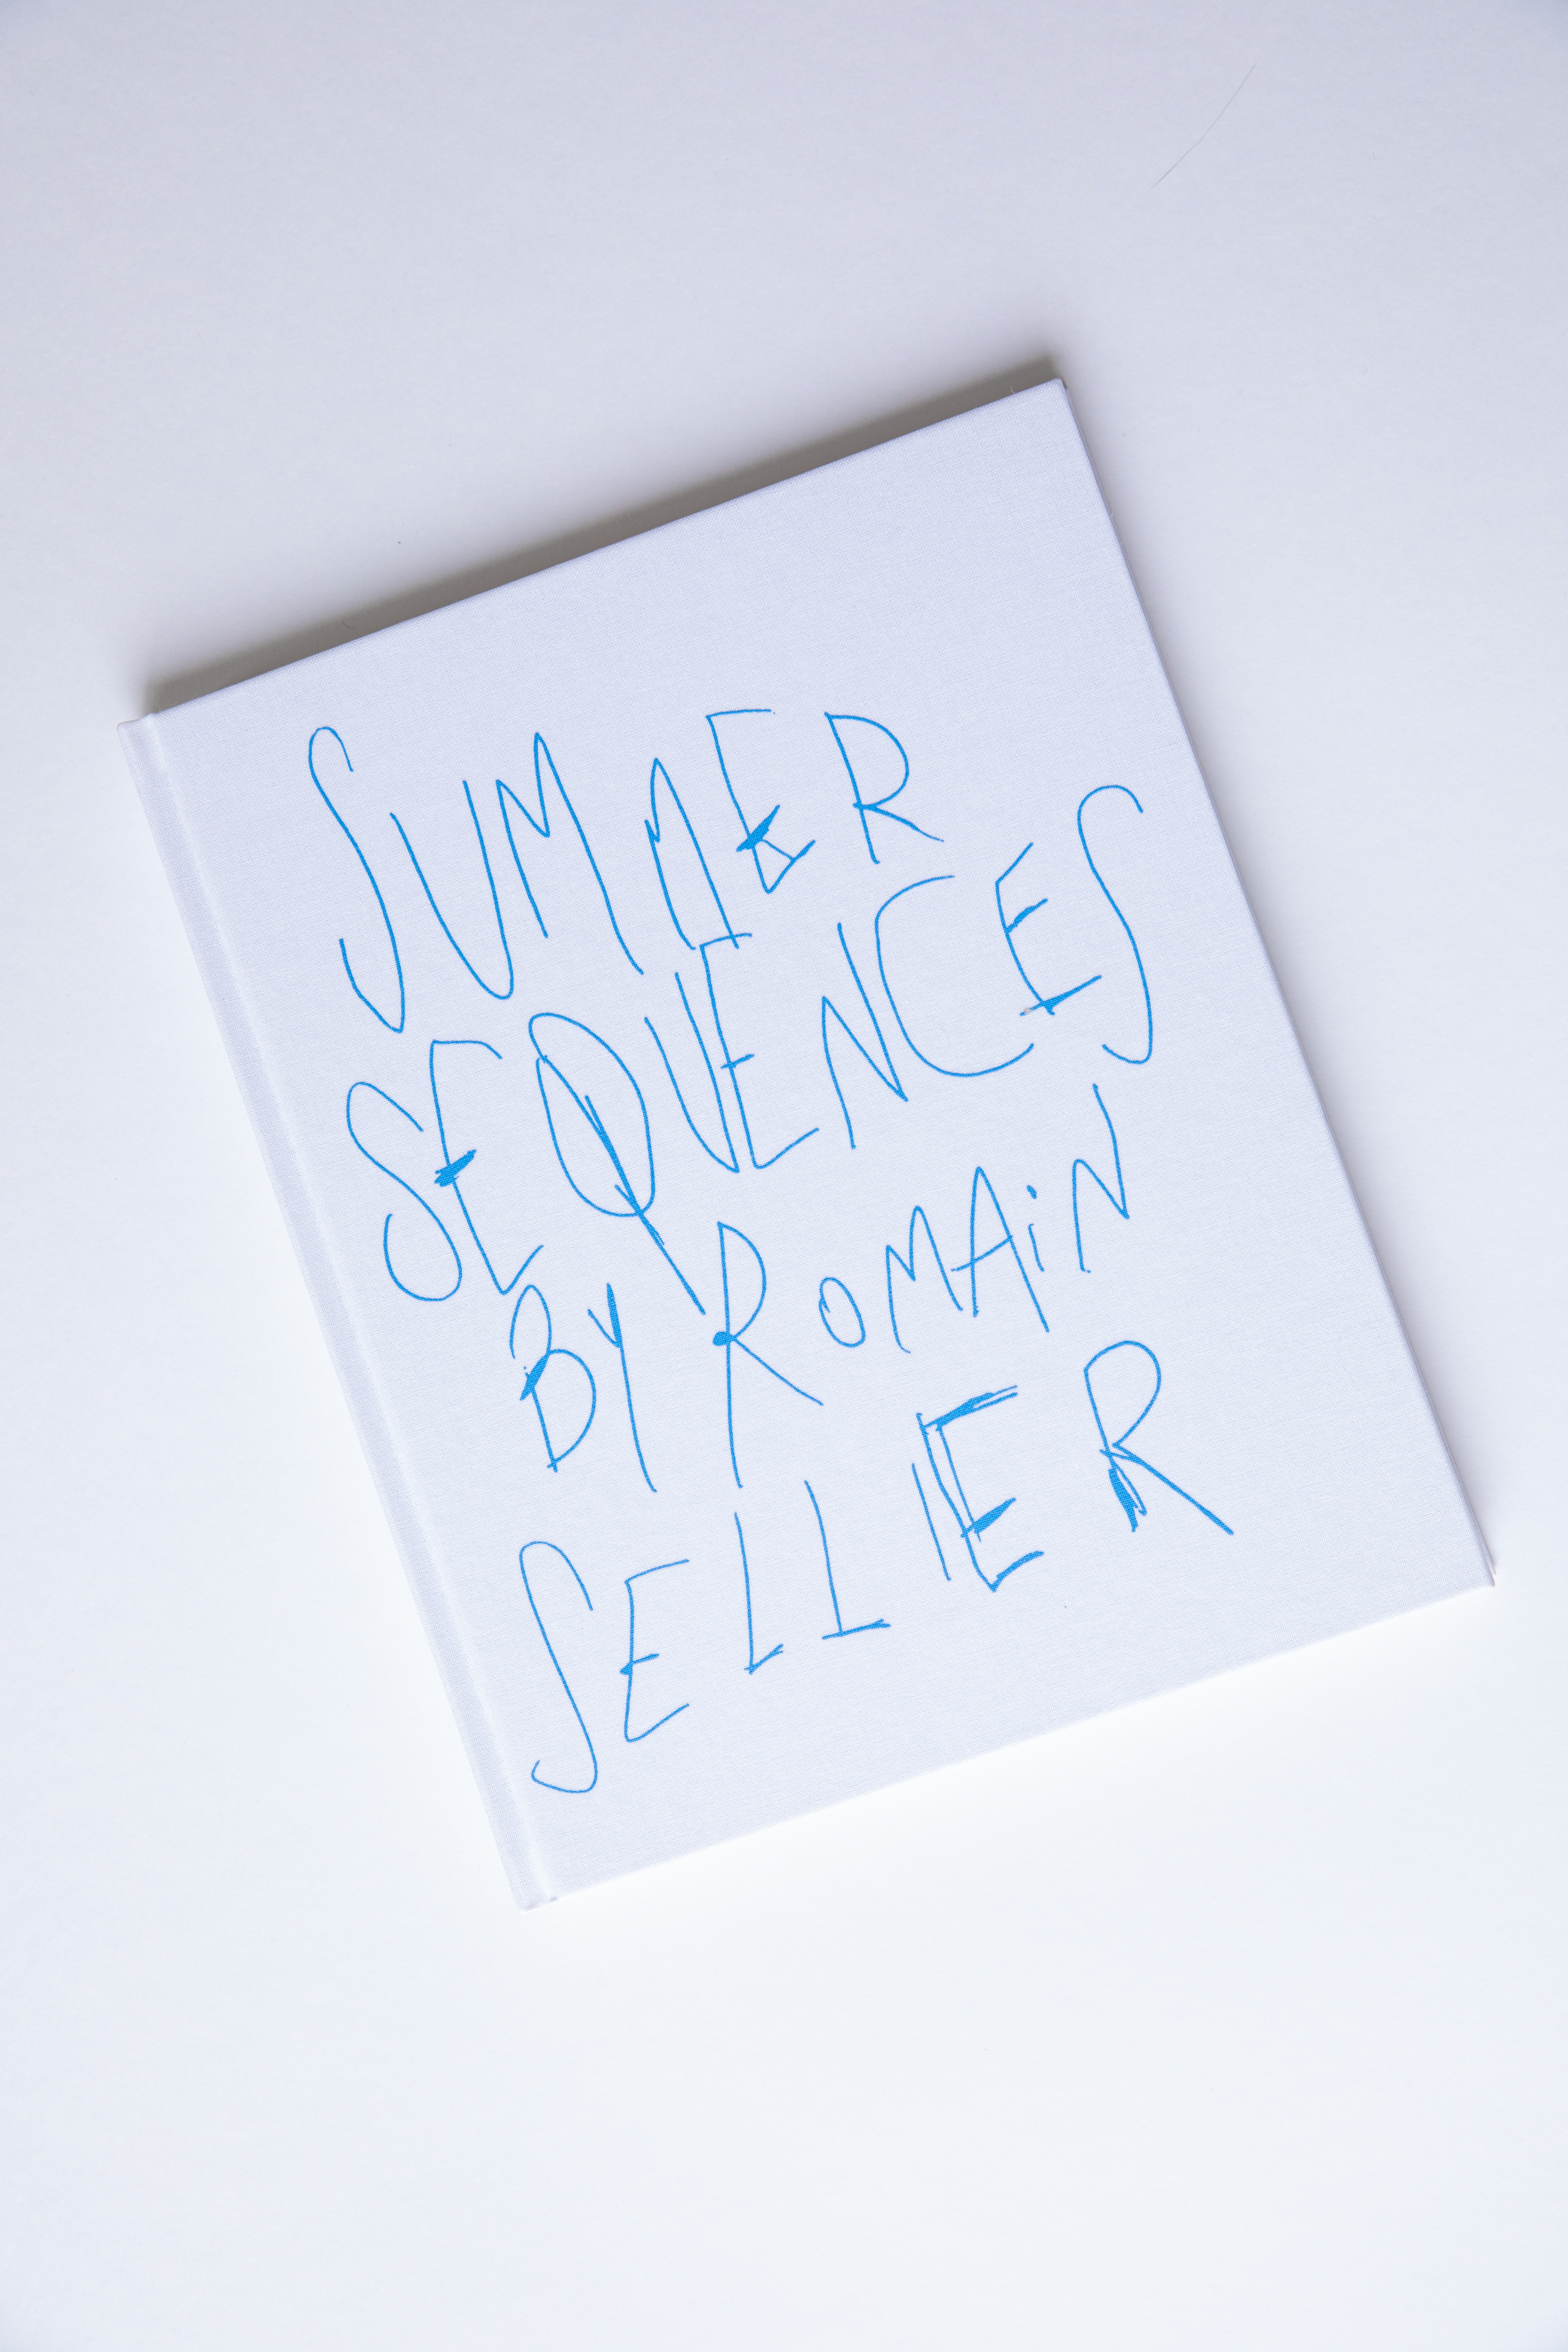 SUMMER
SEQUENCES
BY ROMAiN
SELLIER